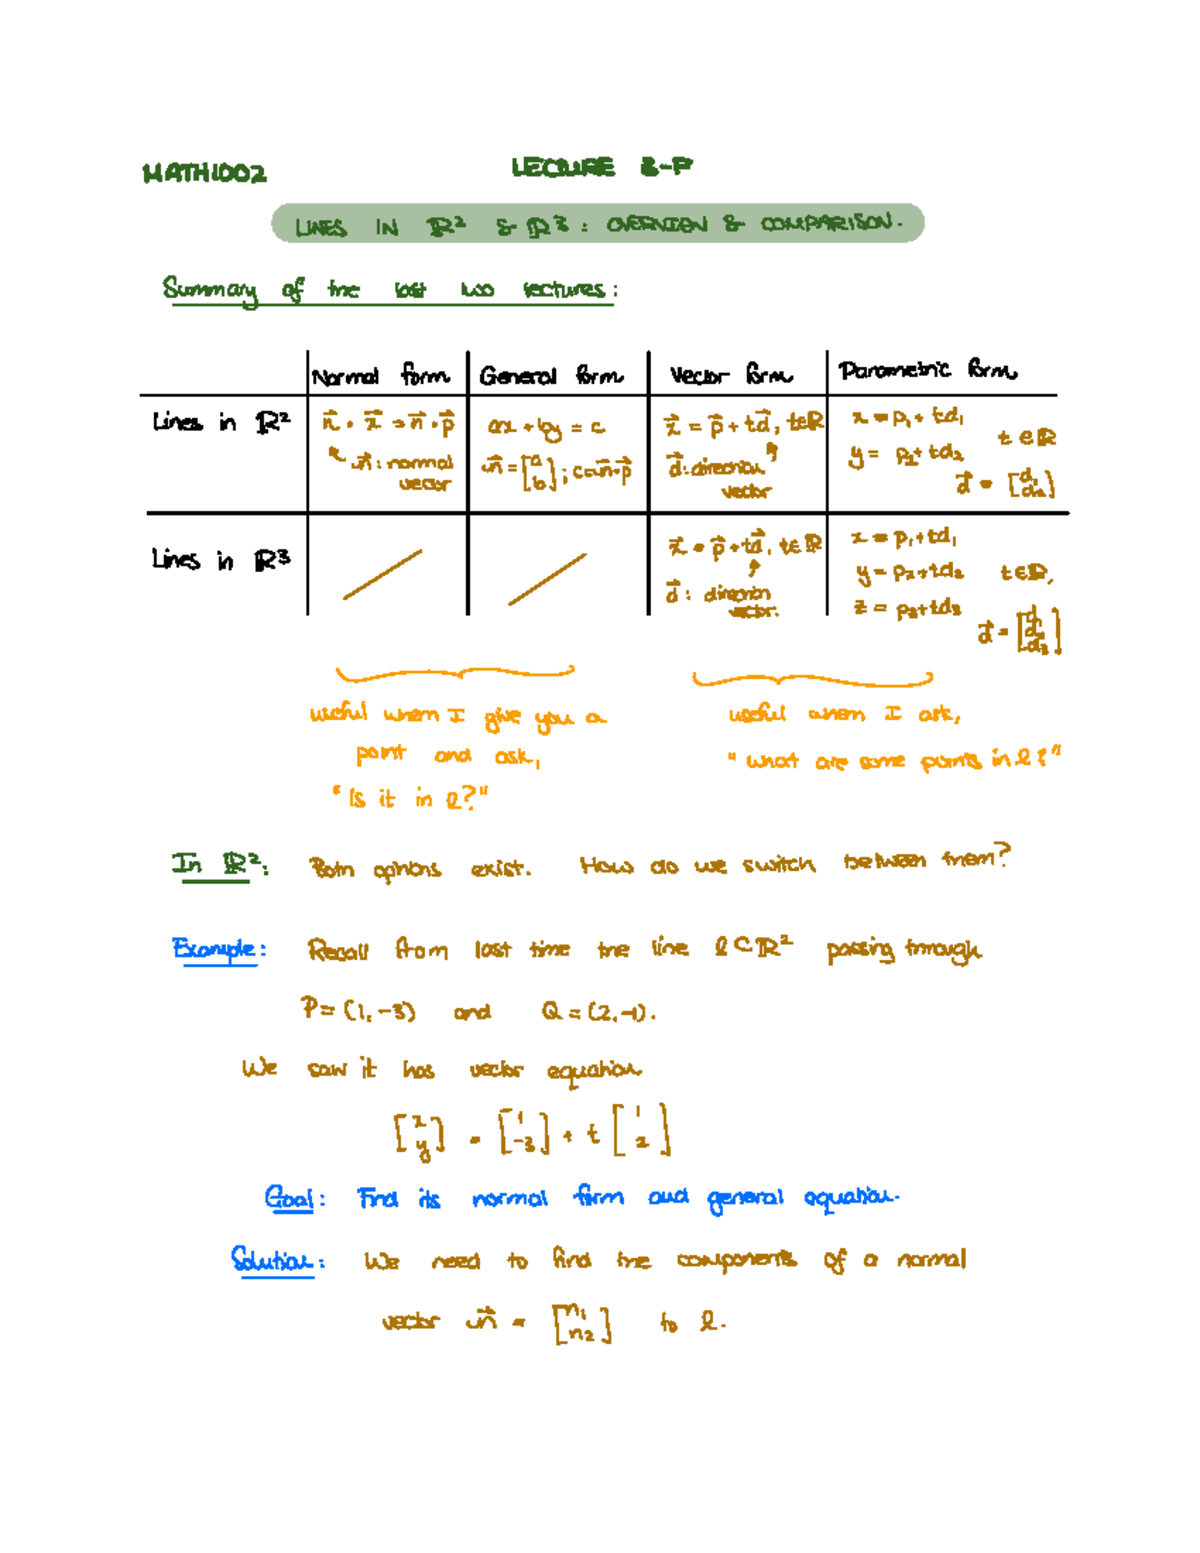 MATH1002
LECTURE 3-P
LINES IN ℝ² & ℝ³ : OVERVIEW & COMPARISON.
Summary of the last two lectures:
Normal form | General form | Vector form | Parametric form
Lines in ℝ²
n⃗ · x⃗ = n⃗ · p⃗
n⃗ : normal vector
ax + by = c
n⃗ = [a b] ; c = n⃗ · p⃗
x⃗ = p⃗ + td⃗, t∈ℝ
d⃗ : direction vector
x = p₁ + td₁
y = p₂ + td₂
t ∈ ℝ
d⃗ = [d₁ d₂]
Lines in ℝ³
x⃗ = p⃗ + td⃗, t∈ℝ
d⃗ : direction vector.
x = p₁ + td₁
y = p₂ + td₂
z = p₃ + td₃
t∈ℝ,
d⃗ = [d₁ d₂ d₃]
useful when I give you a
point and ask,
"Is it in l?"
useful when I ask,
"what are some points in l?"
In ℝ²: Both options exist. How do we switch between them?
Example: Recall from last time the line l ⊂ ℝ² passing through
P = (1, -3) and Q = (2, -1).
We saw it has vector equation
[x y] = [1 -3] + t [1 2]
Goal: Find its normal form and general equation.
Solution: We need to find the components of a normal
vector n⃗ = [n₁ n₂] to l.